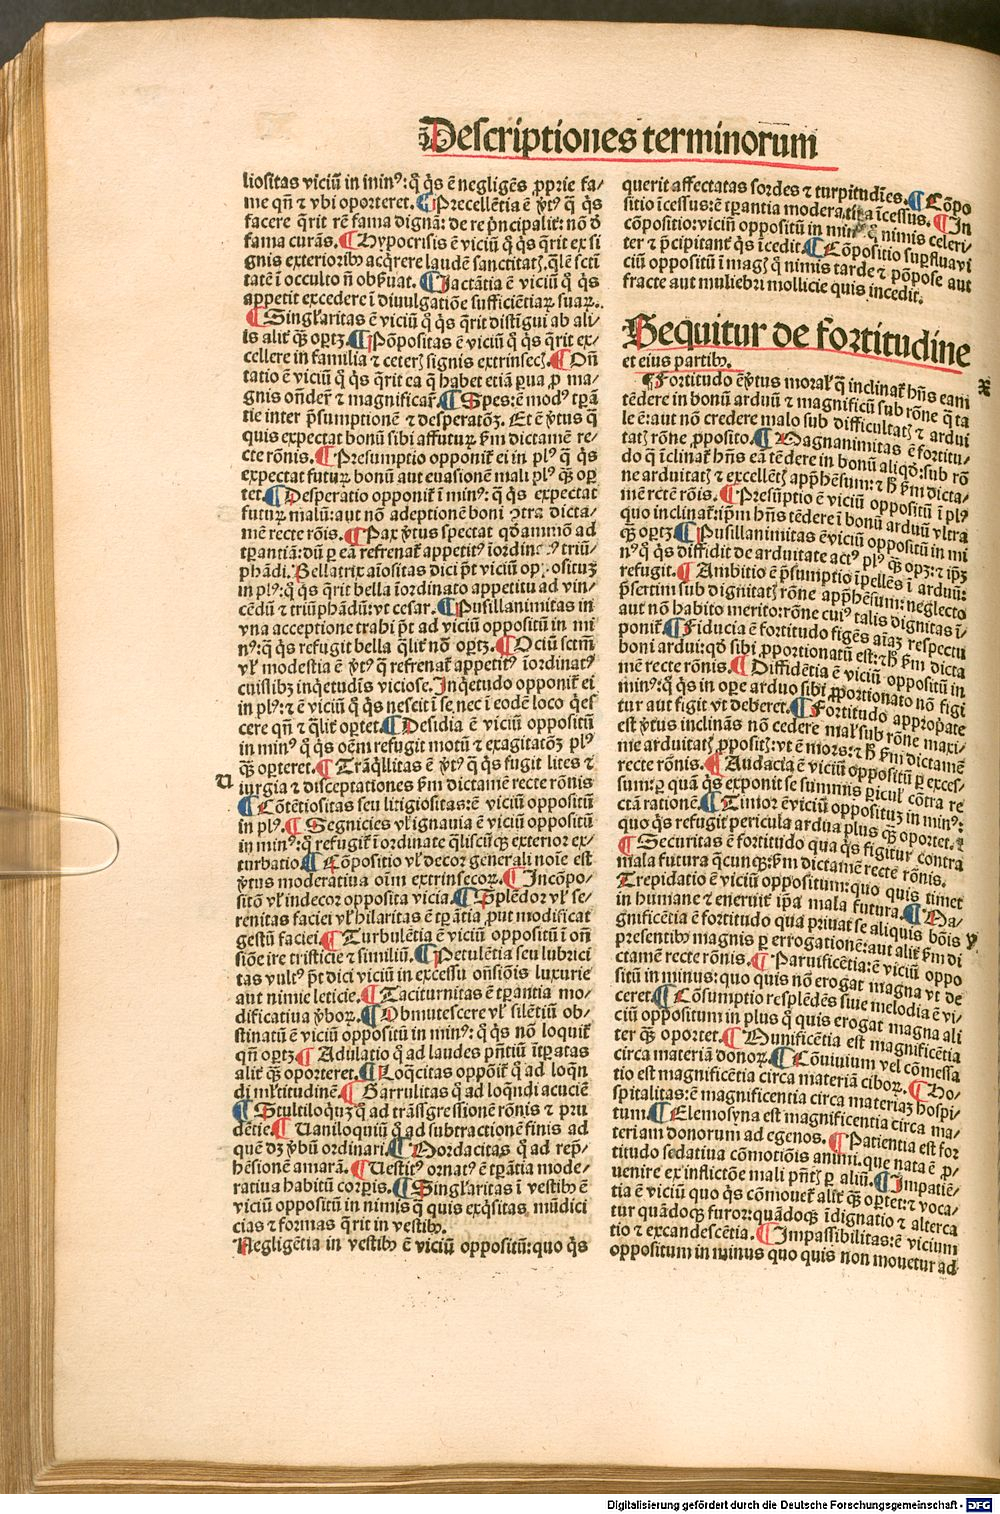 Descriptiones terminorum
liositas viciū in minꝰ: q̄ q̇s ē negligēs ꝓprie fa⸗
me qn̄ ⁊ vbi oporteret. ¶ Precellētia ē v̓tꝰ q̄ q̇s
facere q̄rit rē fama dignā: de re p̓ncipalit̓: nō ð
fama curās. ¶ Hypocrisis ē viciū q̄ q̇s q̄rit ex si
gnis exteriorib₉ acq̇rere laudē sanctitatꝫ. q̄lē sctī
tatē ī occulto n̄ obs̓uat. ¶ Jactātia ē viciū q̄ q̇s
appetit excedere ī diuulgatiōe sufficiētiaꝝ suaꝝ.
¶ Singl̓aritas ē viciū q̄ q̇s q̄rit distīgui ab ali⸗
is alit̓ qꝫ optꝫ. ¶ Pōpositas ē viciū q̄ q̇s q̄rit ex⸗
cellere in familia ⁊ ceterꝭ signis extrinsecꝭ. ¶ Oñ
tatio ē viciū q̄ q̇s q̄rit ea q̄ habet etiā ꝑua ꝓ ma⸗
gnis ondēr̓ ⁊ magnificar̓. ¶ Spes: ē modꝰ tꝑā
tie inter p̓sumptionē ⁊ desperatōꝫ. Et ē v̓tus q̄
quis expectat bonū sibi affuturꝝ ẜm dictamē re⸗
cte rōnis. ¶ Presumptio opponit̓ ei in plꝰ q̄ q̇s
expectat futurꝝ bonū aut euasionē mali plꝰ qꝫ opꝛ
tet. ¶ Desperatio opponit̓ ī minꝰ: q̄ q̇s expectat
futurꝝ malū: aut nō adeptionē boni ꝯtra dicta⸗
mē recte rōis. ¶ Pax v̓tus spectat qdāmō ad
tꝑantiā: dū ꝑ eā refrenat̓ appetitꝰ īordin triū⸗
phādi. Bellatrix aīositas dici pt̄ viciū oppositū
in plꝰ: q̄ q̇s q̄rit bella īordinato appetitu ad vin⸗
cēdū ⁊ triūphādū: vt cesar. ¶ Pusillanimitas in
vna acceptione trahi pt̄ ad viciū oppositū in mi
nꝰ: q̄ q̇s refugit bella q̄lit̓ nō optꝫ. ¶ Ociū sctm̄
vl̓ modestia ē v̓tꝰ q̄ refrenat̓ appetitꝰ īordinatꝰ
cuiuslibꝫ inq̇etudīs viciose. Inq̇etudo opponit̓ ei
in plꝰ: ⁊ ē viciū q̄ q̇s nescit ī se nec ī eodē loco q̇es
cere qn̄ ⁊ q̄lit̓ oꝑtet. ¶ Desidia ē viciū oppositū
in minꝰ q̄ q̇s oēm refugit motū ⁊ exagitatōꝫ plꝰ
qꝫ oꝑteret. ¶ Trāq̇llitas ē v̓tꝰ q̄ q̇s fugit lites ⁊
v
iurgia ⁊ disceptationes ẜm dictamē recte rōnis
¶ Cōtētiositas seu litigiositas: ē viciū oppositū
in plꝰ. ¶ Segnicies vl̓ ignauia ē viciū oppositū
in minꝰ: q̄ refugit̓ īordinate q̄liscūqꝫ exterior ex⸗
turbatio. ¶ Cōpositio vl̓ decor generali noīe est
v̓tus moderatiua oīm extrinsecoꝝ. ¶ Incōpo⸗
sitō vl̓ indecor opposita vicia. ¶ Splēdor vl̓ se⸗
renitas faciei vl̓ hilaritas ē tꝑātia ꝓut modificat
gestū faciei. ¶ Turbulētia ē viciū oppositū ī oñ
siōe ire tristicie ⁊ similiū. ¶ Petulētia seu lubrici
tas vultꝰ pt̄ dici viciū in excessu oñsiōis luxurie
aut nimie leticie. ¶ Taciturnitas ē tꝑantia mo⸗
dificatiua v̓boꝝ. ¶ Obmutescere vl̓ silētiū ob⸗
stinatū ē viciū oppositū in minꝰ: q̄ q̇s nō loquit̓
qn̄ optꝫ ¶ Adulatio q̄ ad laudes pn̄tiū ītꝑatas
alit̓ qꝫ oporteret. ¶ Loq̄citas oppōit̓ q̄ ad loqn̄
di ml̓titudinē. ¶ Garrulitas q̄ ad loqn̄di acuciē
¶ Stultiloquꝫ q̄ ad trāsgressionē rōnis ⁊ pru
dētie. ¶ Uaniloquiū q̄ ad subtractionē finis ad
quē dꝫ v̓bū ordinari. ¶ Mordacitas q̄ ad rep̓⸗
hēsionē amarā. ¶ Uestitꝰ ornatꝰ ē tꝑātia mode⸗
ratiua habitū corꝑis. ¶ Singl̓aritas ī vestib₉ ē
viciū oppositū in nimis q̄ quis exq̇sitas, mūdici
cias ⁊ formas q̄rit in vestib₉.
Negligētia in vestib₉ ē viciū oppositū: quo q̇s
querit affectatas sordes ⁊ turpitudīes. ¶ Cōpo
sitio īcessus: ē tꝑantia moderatiua īcessus. ¶ In
cōpositio: viciū oppositū in minꝰ q̄ nimis celeri⸗
ter ⁊ p̓cipitant̓ q̇s īcedit. ¶ Cōpositio suꝑflua vi
ciū oppositū ī magꝭ q̄ nimis tarde ⁊ pōpose aut
fracte aut muliebri mollicie quis incedit.
Sequitur de fortitudine
et eius partib₉.
x
¶ Fortitudo ē v̓tus moral̓ q̄ inclinat̓ hn̄s eam
tēdere in bonū arduū ⁊ magnificū sub rōne q̄ ta
le ē: aut nō credere malo sub difficultatꝭ ⁊ ardui
tatꝭ rōne ꝓposito. ¶ Magnanimitas ē fortitu⸗
do q̄ īclinat̓ hn̄s eā tēdere in bonū aliqð: sub rō
ne arduitatꝭ ⁊ excellētꝭ app̓hēsum: ⁊ h̓ ẜm dicta⸗
mē rectē rōis. ¶ Presūptio ē viciū oppositū ī plꝰ
quo inclinat̓: ip̄m hn̄s tēdere ī bonū arduū vltra
qꝫ optꝫ. ¶ Pusillanimitas ē viciū oppositū in mi
nꝰ q̄ q̇s diffidit de arduitate actꝰ plꝰ qꝫ opꝫ: ⁊ ip̄ꝫ
refugit. ¶ Ambitio ē p̓sumptio īpellēs ī arduū:
p̓sertim sub dignitatꝭ rōne app̓hēsum: neglecto
aut nō habito merito: rōne cuiꝰ talis dignitas ī⸗
ponit̓. ¶ Fiducia ē fortitudo figēs aīaꝫ respectu
boni ardui: qð sibi ꝓportionatū est: ⁊ h̓ ẜm dicta
mē recte rōnis. ¶ Diffidētia ē viciū oppositū in
minꝰ: q̄ q̇s in oꝑe arduo sibi ꝓportionato nō figi
tur aut figit vt deberet. ¶ Fortitudo appropate
est v̓tus inclinās nō cedere malꝭ sub rōne maxi⸗
me arduitatꝭ ꝓpositꝭ: vt ē mors: ⁊ h̓ ẜm dictamē
recte rōnis. ¶ Audacia ē viciū oppositū ꝑ exces⸗
sum: ꝑ quā q̇s exponit se summis ꝑicul̓ cōtra re
ctā rationē. ¶ Timor ē viciū oppositūꝫ in minꝰ:
quo q̇s refugit pericula ardua plus qꝫ oportet.
¶ Securitas ē fortitudo qua q̇s figitur contra
mala futura q̄cunqꝫ: ẜm dictamē rectē rōnis.
Trepidatio ē viciū oppositum: quo quis timet
in humane ⁊ eneruit̓ ip̄a mala futura. ¶ Ma⸗
gnificētia ē fortitudo qua priuat se aliquis bōis
y
presentib₉ magnis ꝑ errogationē: aut alit̓ ẜm di
ctamē recte rōnis. ¶ Paruificētia: ē viciū oppo
sitū in minus: quo quis nō erogat magna vt de
ceret. ¶ Cōsumptio resplēdēs siue melodia ē vi⸗
ciū oppositum in plus q̄ quis erogat magna ali
ter qꝫ oportet. ¶ Munificētia est magnificētia
circa materiā donoꝝ. ¶ Cōuiuium vel cōmessa
tio est magnificētia circa materiā ciboꝝ. ¶ Ho⸗
spitalitas: ē magnificentia circa materiaꝫ hospi⸗
tum. ¶ Elemosyna est magnificentia circa ma⸗
teriam donorum ad egenos. ¶ Patientia est for
titudo sedatiua cōmotiōis animi. que nata ē ꝓ⸗
uenire ex inflictōe mali pn̄tꝭ ꝑ aliū. ¶ Impatiē⸗
tia ē viciū quo q̇s cōmouet̓ alit̓ qꝫ oꝑtet: ⁊ voca⸗
tur quādoqꝫ furor: quādoqꝫ īdignatio ⁊ alterca
tio ⁊ excandescētia. ¶ Impassibilitas: ē vicium
oppositum in minus quo quis non mouetur ad
Digitalisierung gefördert durch die Deutsche Forschungsgemeinschaft - DFG